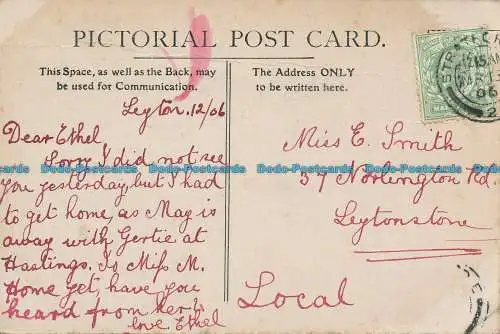 PICTORIAL POST CARD.
This Space, as well as the Back, may
be used for Communication.
The Address ONLY
to be written here.
Leyton. 12/06
Dear Ethel
Sorry I did not see
you yesterday but I had
to get home, as May is
away with Gertie at
Hastings. Is Miss M.
Home yet, have you
heard from her?
love Ethel
Miss E. Smith
37 Norlington Rd
Leytonstone
Local
12.15AM
06
Dodo-Postcards Dodo-Postcards Dodo-Postcards Dodo-Postcards Dodo-Postcards